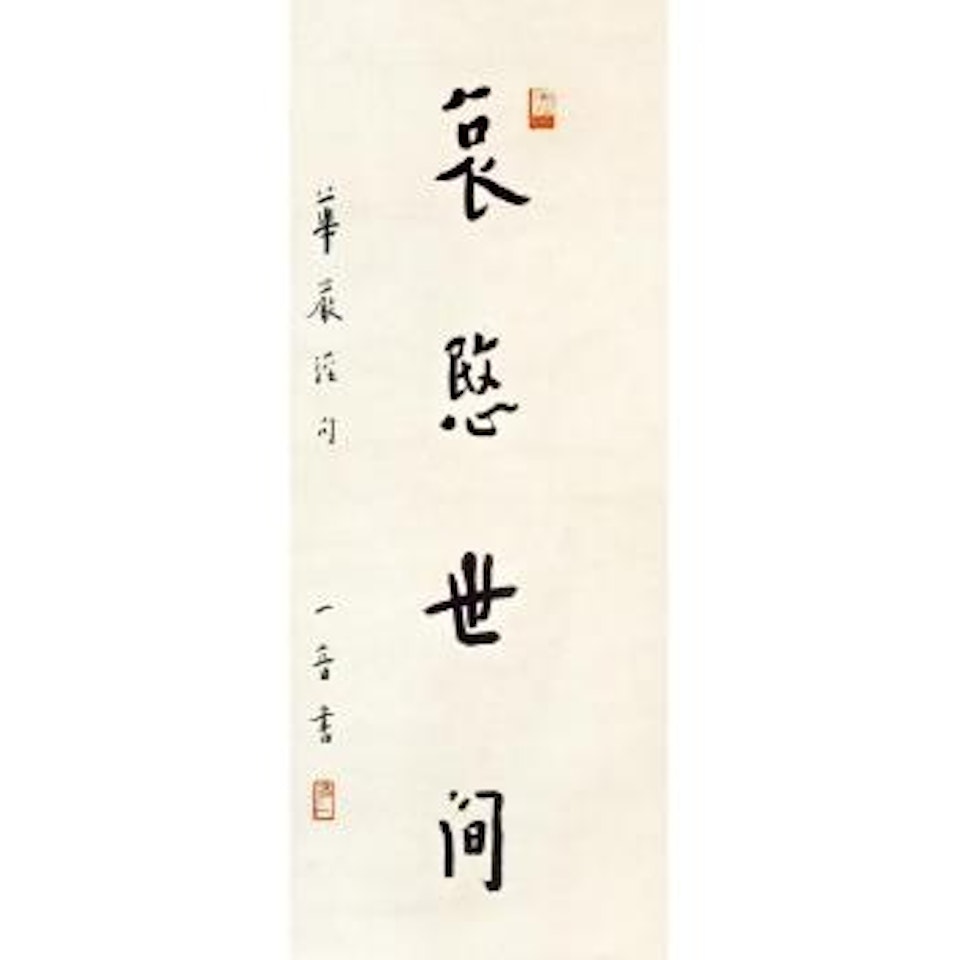 哀愍世间
華嚴經句
一音書